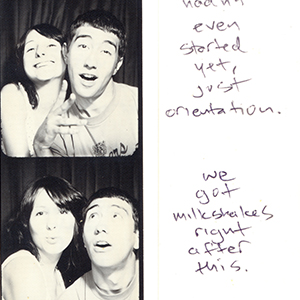 hadn't
even
started
yet,
just
orientation.
we
got
milkshakes
right
after
this.